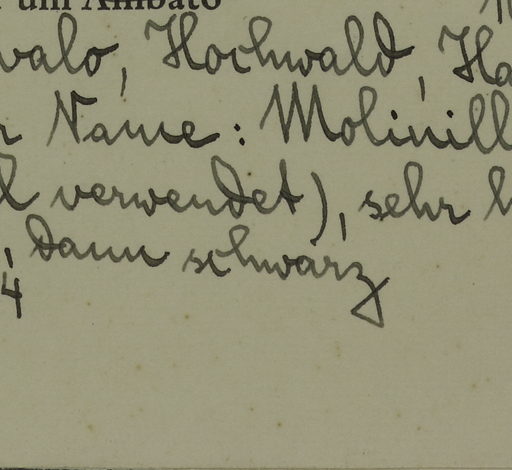 um Ambato
valo, Hochwald, Ha
r Name: Molinill
l verwendet), sehr h
, dann schwarz
4